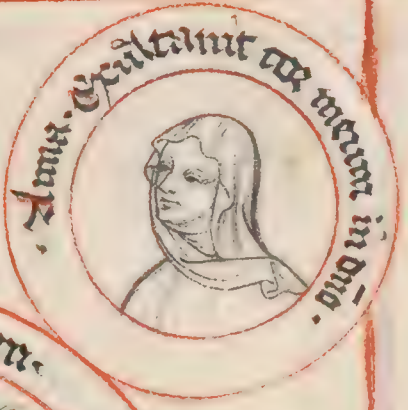 · Anna · Exultavit cor meum in dño ·
m.